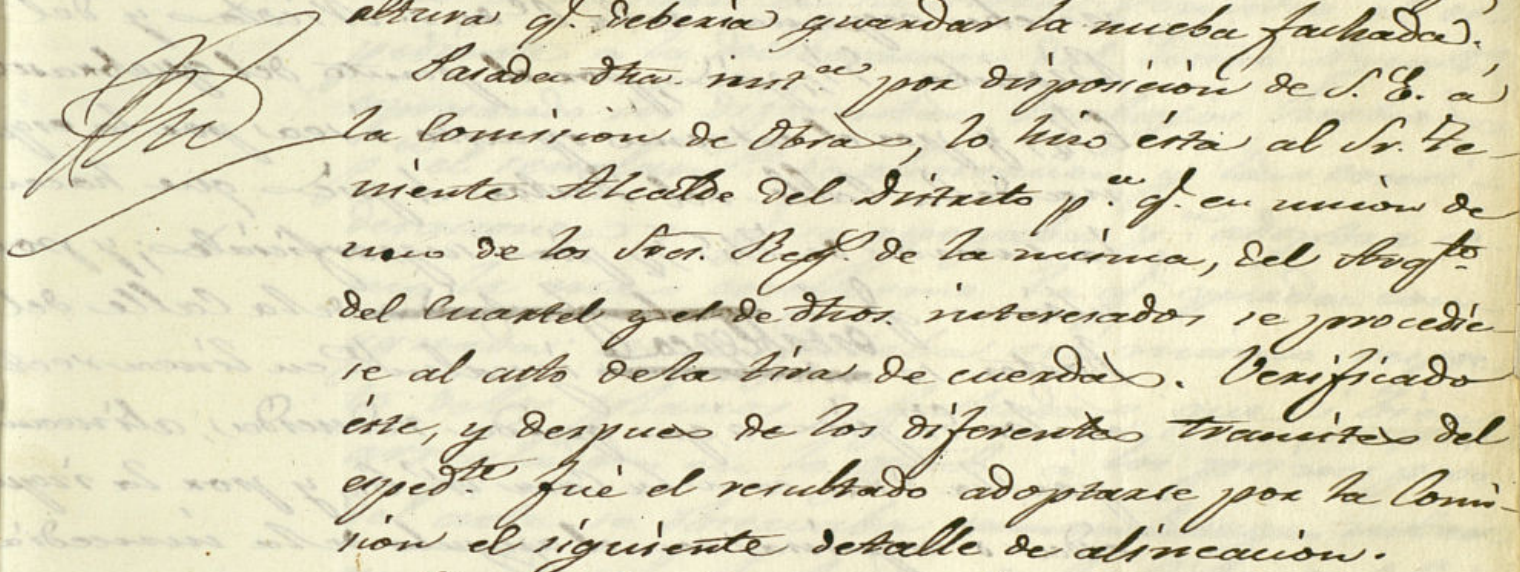 altura q.̃ deberia guardar la nueba fachada.
Pasada dha. inst.ª por disposicion de S. E. á
la Comision de Obras, lo hizo ésta al Sr. Te-
niente Alcalde del Distrito p.ª q.̃ en union de
uno de los Sres. Reg.̃ de la misma, del Arqto.
del Cuartel y el de dhos. interesados se procedie-
se al acto dela tira de cuerdas. Verificado
éste, y despues de los diferentes tramites del
esped.te fué el resultado adoptarse por la Comi-
sion el siguiente detalle de alineacion.